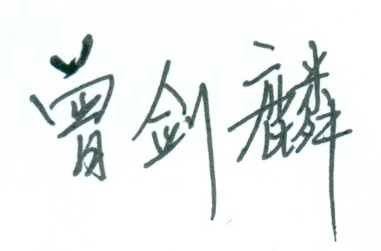 曾剑麟